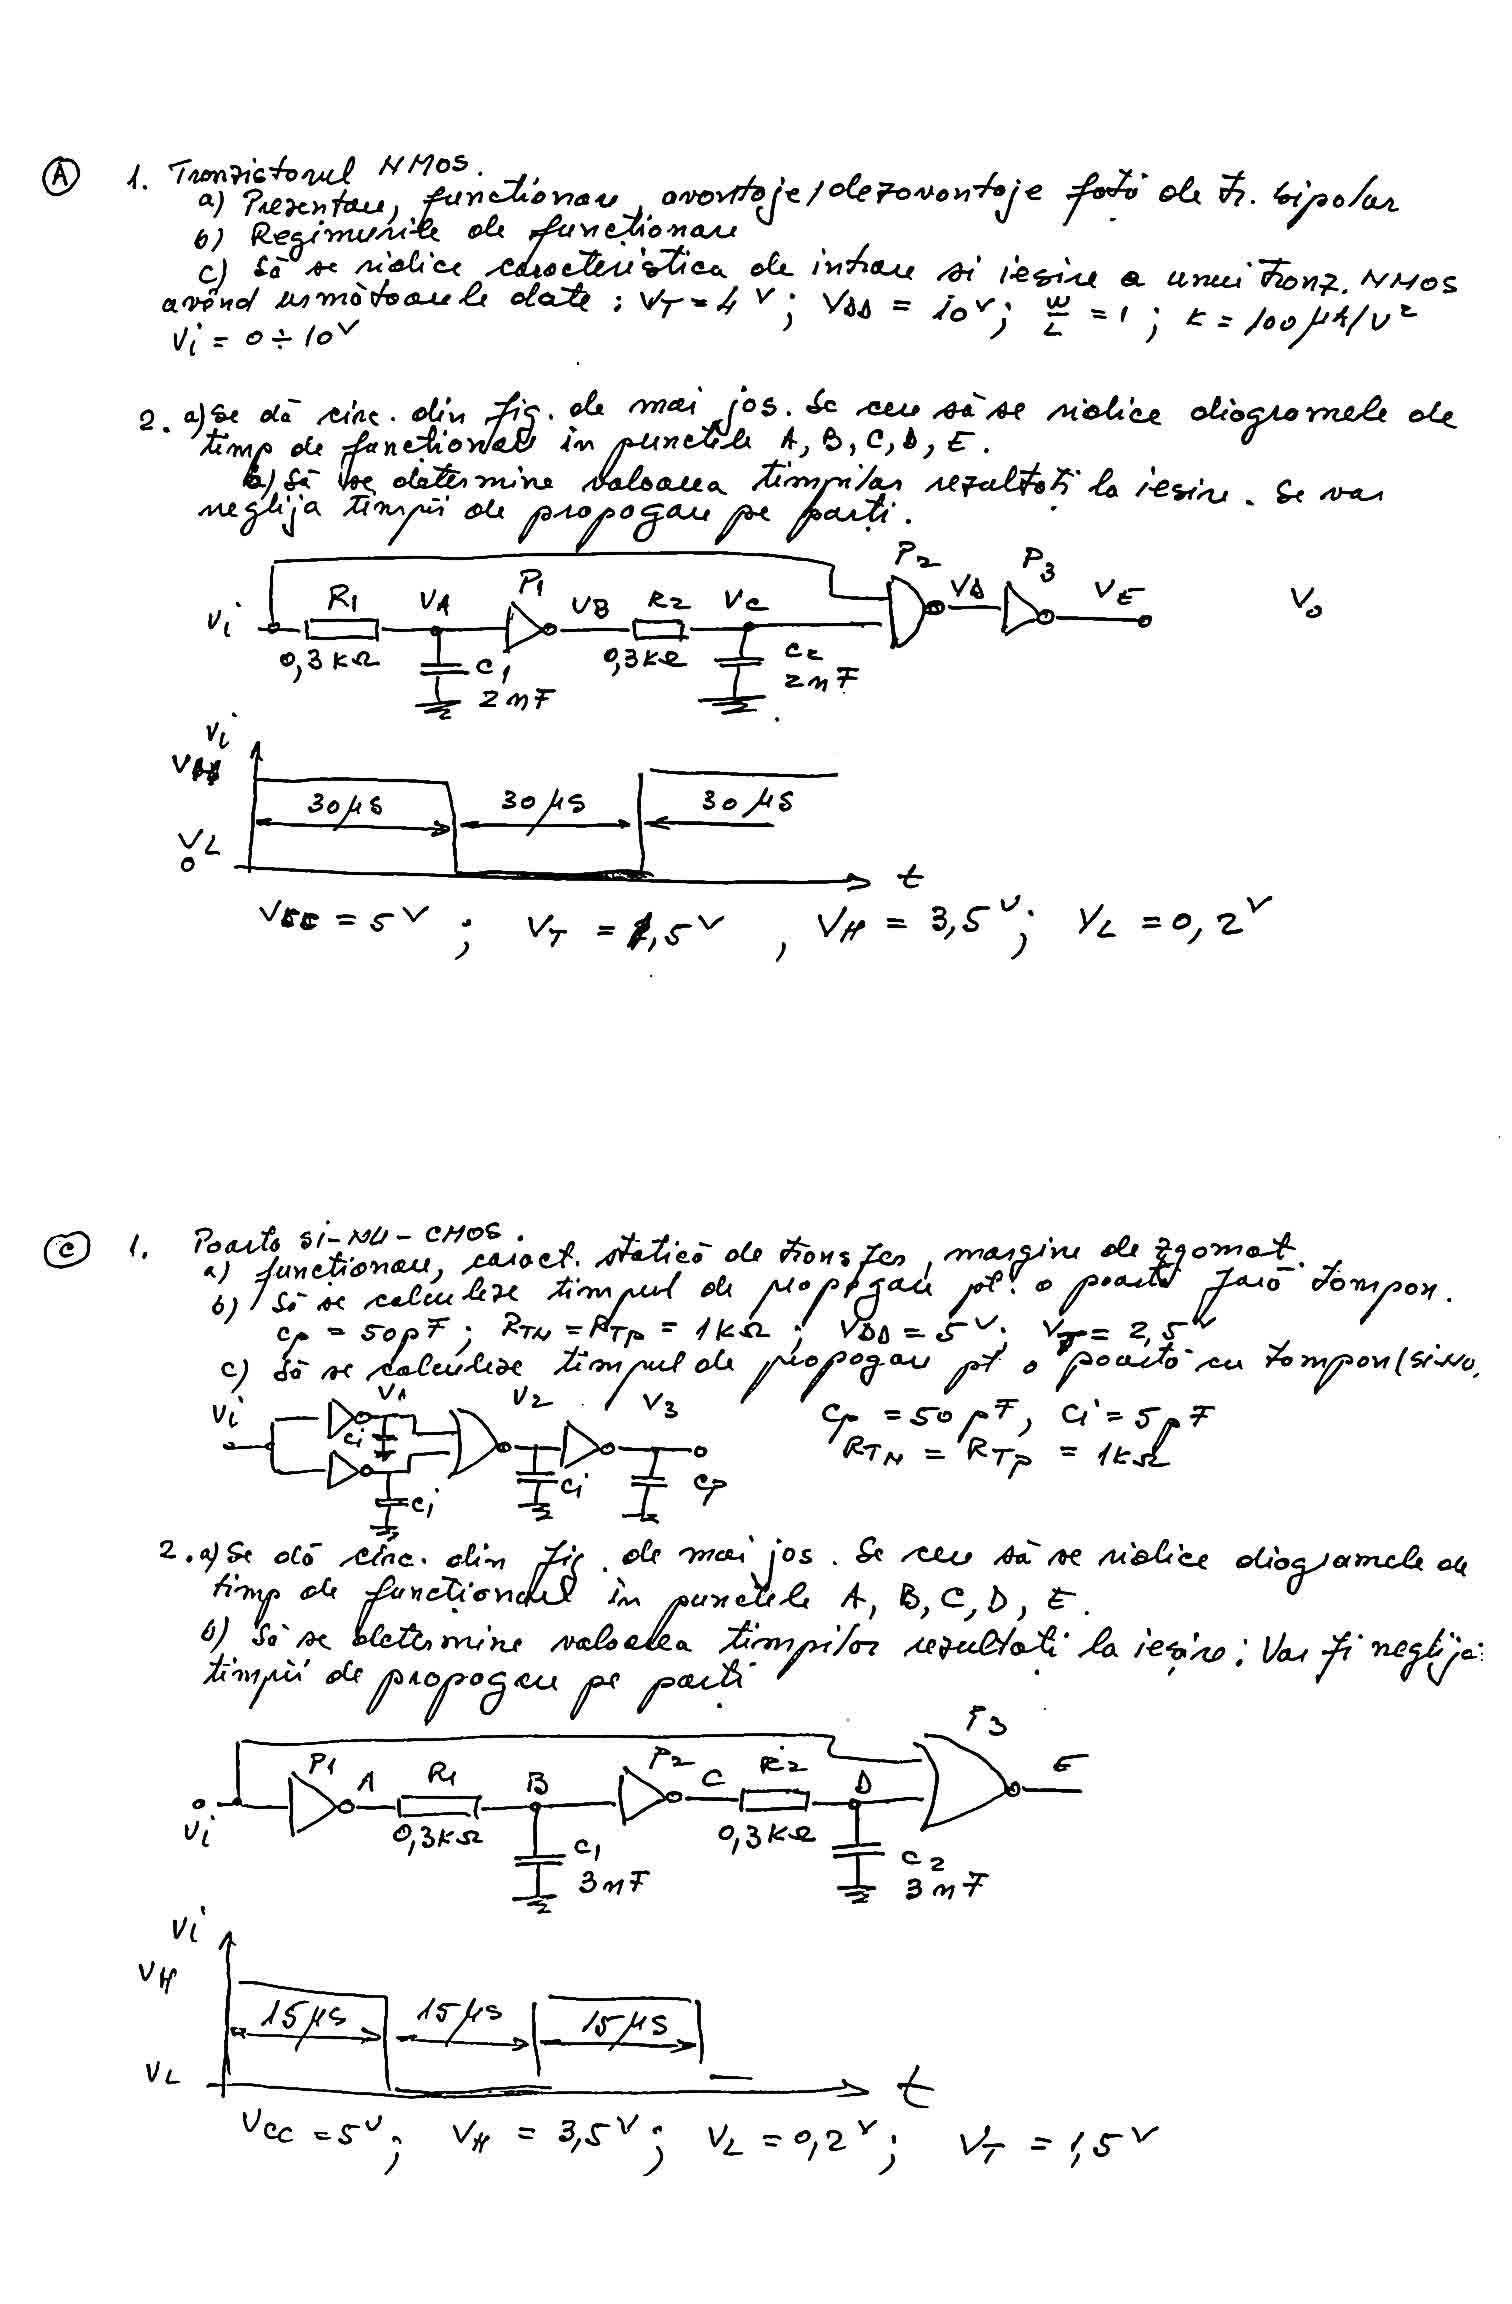 A 1. Tranzistorul NMOS.
a) Prezentare, functionare, avantaje/dezavantaje față de tr. bipolar
b) Regimurile de funcționare
c) Să se ridice caracteristica de intrare si iesire a unui tranz. NMOS
avînd următoarele date : VT = 4 V ; VDD = 10 V ; W/L = 1 ; K = 100 µA/V²
Vi = 0 ÷ 10 V
2. a) Se dă circ. din fig. de mai jos. Se cere să se ridice diagramele de
timp de funcționare în punctele A, B, C, D, E.
b) Să se determine valoarea timpilor rezultați la iesire. Se vor
neglija timpii de propagare pe porți.
P2 P3
Vi R1 VA P1 VB R2 VC VD VE Vo
0,3 kΩ C1 0,3 kΩ C2
2 nF 2 nF
Vi
30 µs 30 µs 30 µs
VL
0 t
VCC = 5 V ; VT = 1,5 V , VH = 3,5 V ; VL = 0,2 V
C 1. Poarta SI-NU-CMOS.
a) funcționare, caract. statică de transfer, margine de zgomot
b) Să se calculeze timpul de propagare pt. o poartă fară tampon.
Cp = 50 pF ; RTN = RTP = 1 kΩ ; VDD = 5 V ; VT = 2,5 V
c) Să se calculeze timpul de propagare pt o poartă cu tampon (SI-NU,
Vi V1 V2 V3 Cp = 50 pF, Ci = 5 pF
Ci RTN = RTP = 1 kΩ
Ci Ci Cp
2. a) Se dă circ. din fig. de mai jos. Se cere să se ridice diagramele de
timp de funcționare în punctele A, B, C, D, E.
b) Să se determine valoarea timpilor rezultați la ieșire ; Vor fi neglija
timpii de propagare pe porti
P3
P1 A R1 B P2 C R2 D E
Vi 0,3 kΩ C1 0,3 kΩ C2
3 nF 3 nF
Vi
VH
15 µs 15 µs 15 µs
VL t
VCC = 5 V ; VH = 3,5 V ; VL = 0,2 V ; VT = 1,5 V